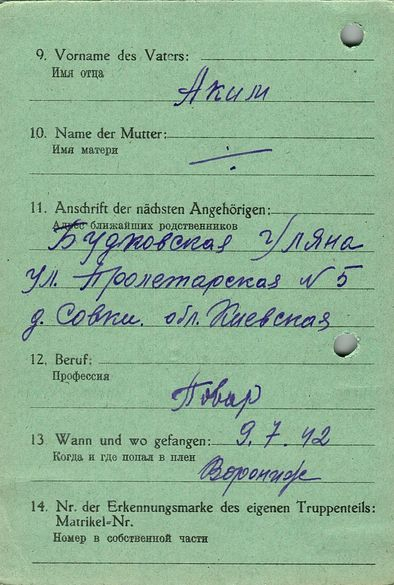 9. Vorname des Vaters:
Имя отца
Аким
10. Name der Mutter:
Имя матери
÷
11. Anschrift der nächsten Angehörigen:
Адрес ближайших родственников
Будковская Уляна
ул. Пролетарская N 5
д. Совки. обл. Киевская
12. Beruf:
Профессия
Повар
13 Wann und wo gefangen: 9.7.42
Когда и где попал в плен
14. Nr. der Erkennungsmarke des eigenen Truppenteils:
Matrikel-Nr.
Номер в собственной части